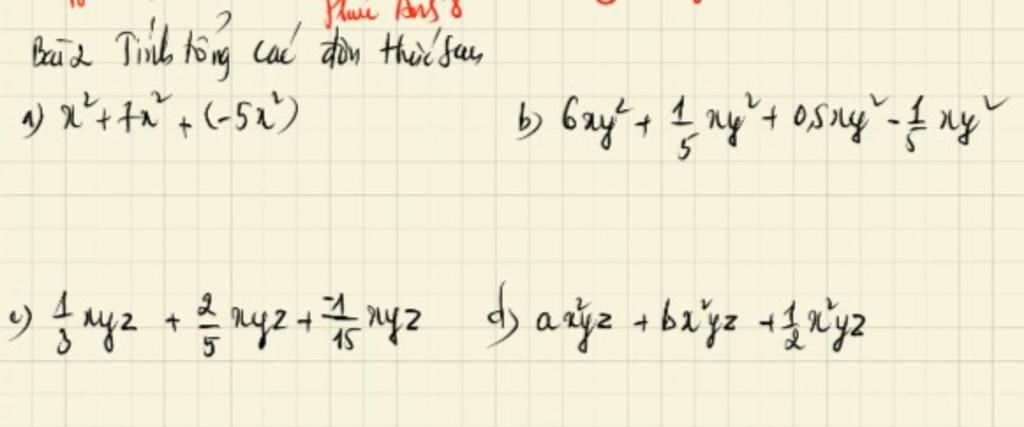 Bài 2 Tính tổng các đơn thức sau
a) x² + 7x² + (-5x²) b) 6xy² + 1/5 xy² + 0,5xy² - 1/5 xy²
c) 1/3 xyz + 2/5 xyz + -1/15 xyz d) ax²yz + bx²yz + 1/2 x²yz